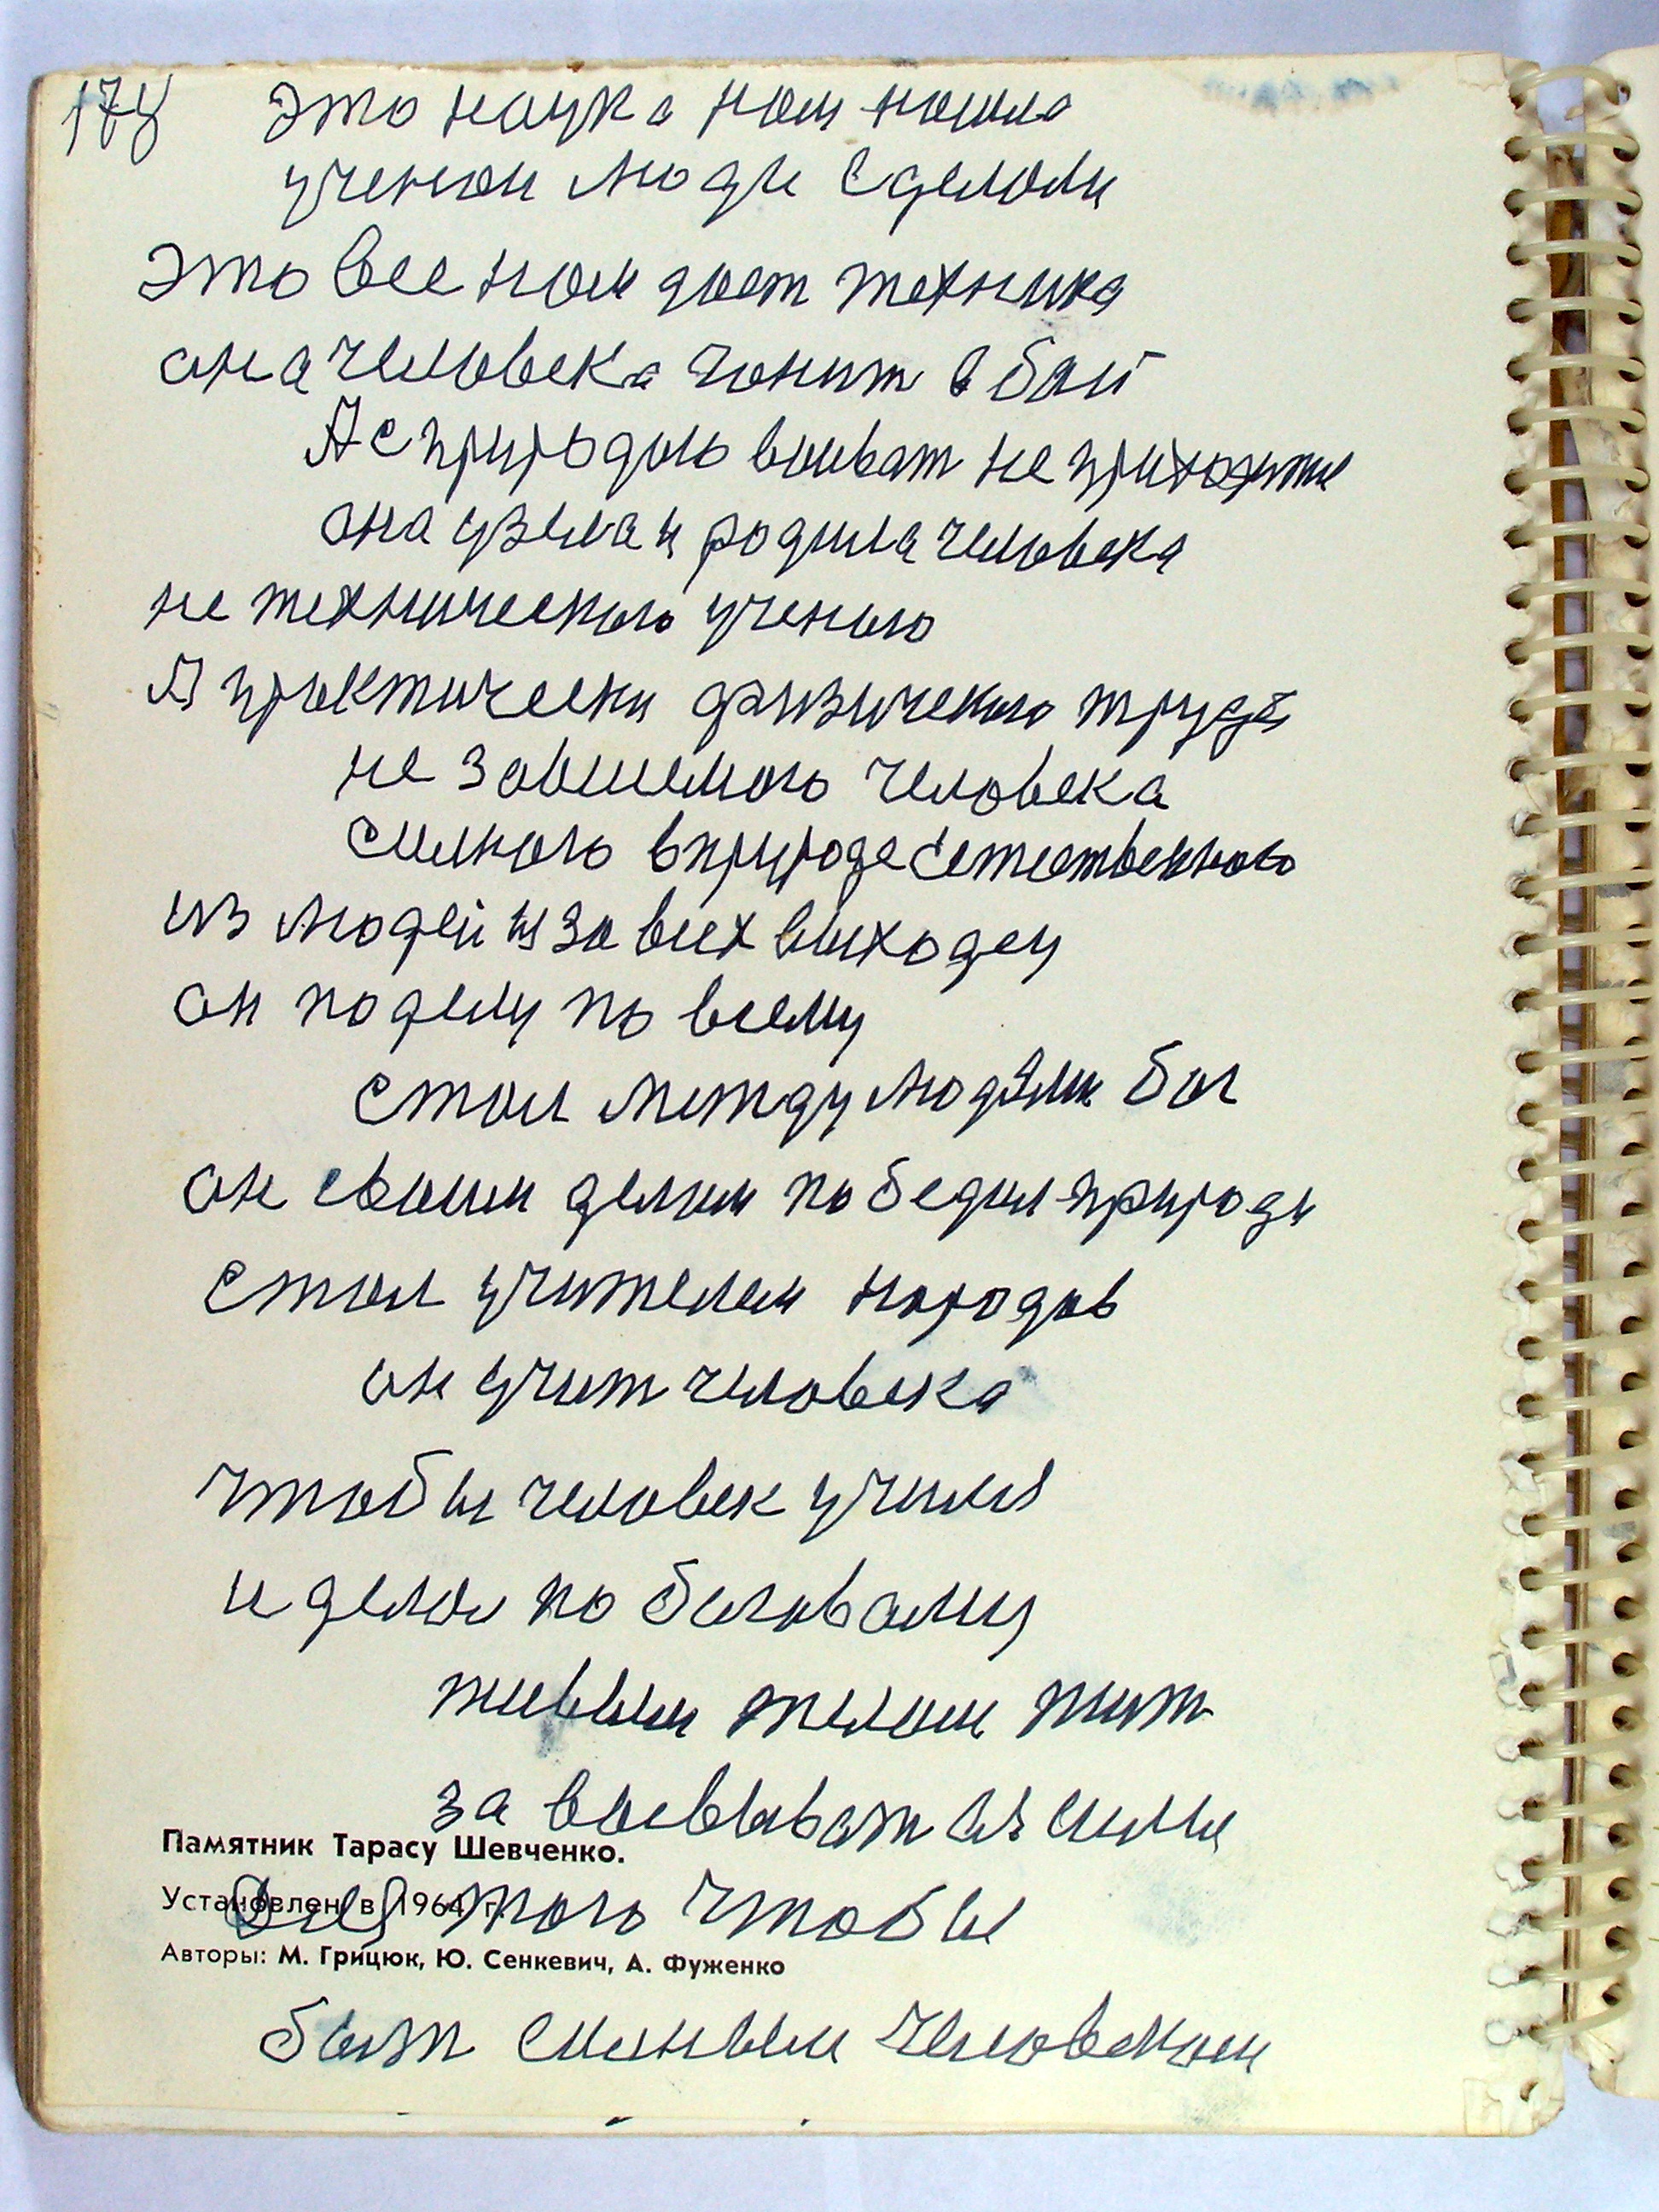 178 это наука нам нашла
ученаи люди сделали
это все нам дает техника
она человека гонит в бой
А с природою воиват не приходитце
она узела и родила человека
не техническаго ученаго
А практически физическаго труда
не завиемаго человека
силнаго в природе естественаго
из людей из за всех виходец
он по делу по всему
стал межды людями бог
он своим делам победил природы
стал учителем народов
он учит человека
чтобы человек училя
и делал по боговаму
живым телам жит
за воевыват из силы
Памятник Тарасу Шевченко.
Установлен в 1964 г.
Для таго чтобы
Авторы: М. Грицюк, Ю. Сенкевич, А. Фуженко
быт силным человеком